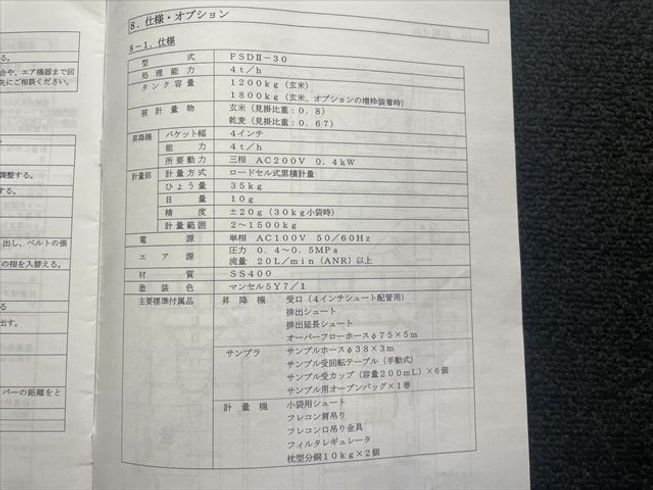 る。
合や、エア機器まで回
先にご相談ください。
調整する。
する。
出し、ベルトの張
の相を入替える。
る
出す。
バーの距離をと
8．仕様・オプション
8－1．仕様
型式 FSDⅡ－30
処理能力 4t／h
タンク容量 1200kg（玄米）
1800kg（玄米、オプションの増枠装着時）
被計量物 玄米（見掛比重：0．8）
乾麦（見掛比重：0．67）
昇降機 バケット幅 4インチ
能力 4t／h
所要動力 三相 AC200V 0．4kW
計量部 計量方式 ロードセル式累積計量
ひょう量 35kg
目量 10g
精度 ±20g（30kg小袋時）
計量範囲 2～1500kg
電源 単相 AC100V 50／60Hz
エア源 圧力 0．4～0．5MPa
流量 20L／min（ANR）以上
材質 SS400
塗装色 マンセル5Y7／1
主要標準付属品 昇降機 受口（4インチシュート配管用）
排出シュート
排出延長シュート
オーバーフローホースφ75×5m
サンプラ サンプルホースφ38×3m
サンプル受回転テーブル（手動式）
サンプル受カップ（容量200mL）×6個
サンプル用オープンバッグ×1巻
計量機 小袋用シュート
フレコン肩吊り
フレコン口吊り金具
フィルタレギュレータ
枕型分銅10kg×2個